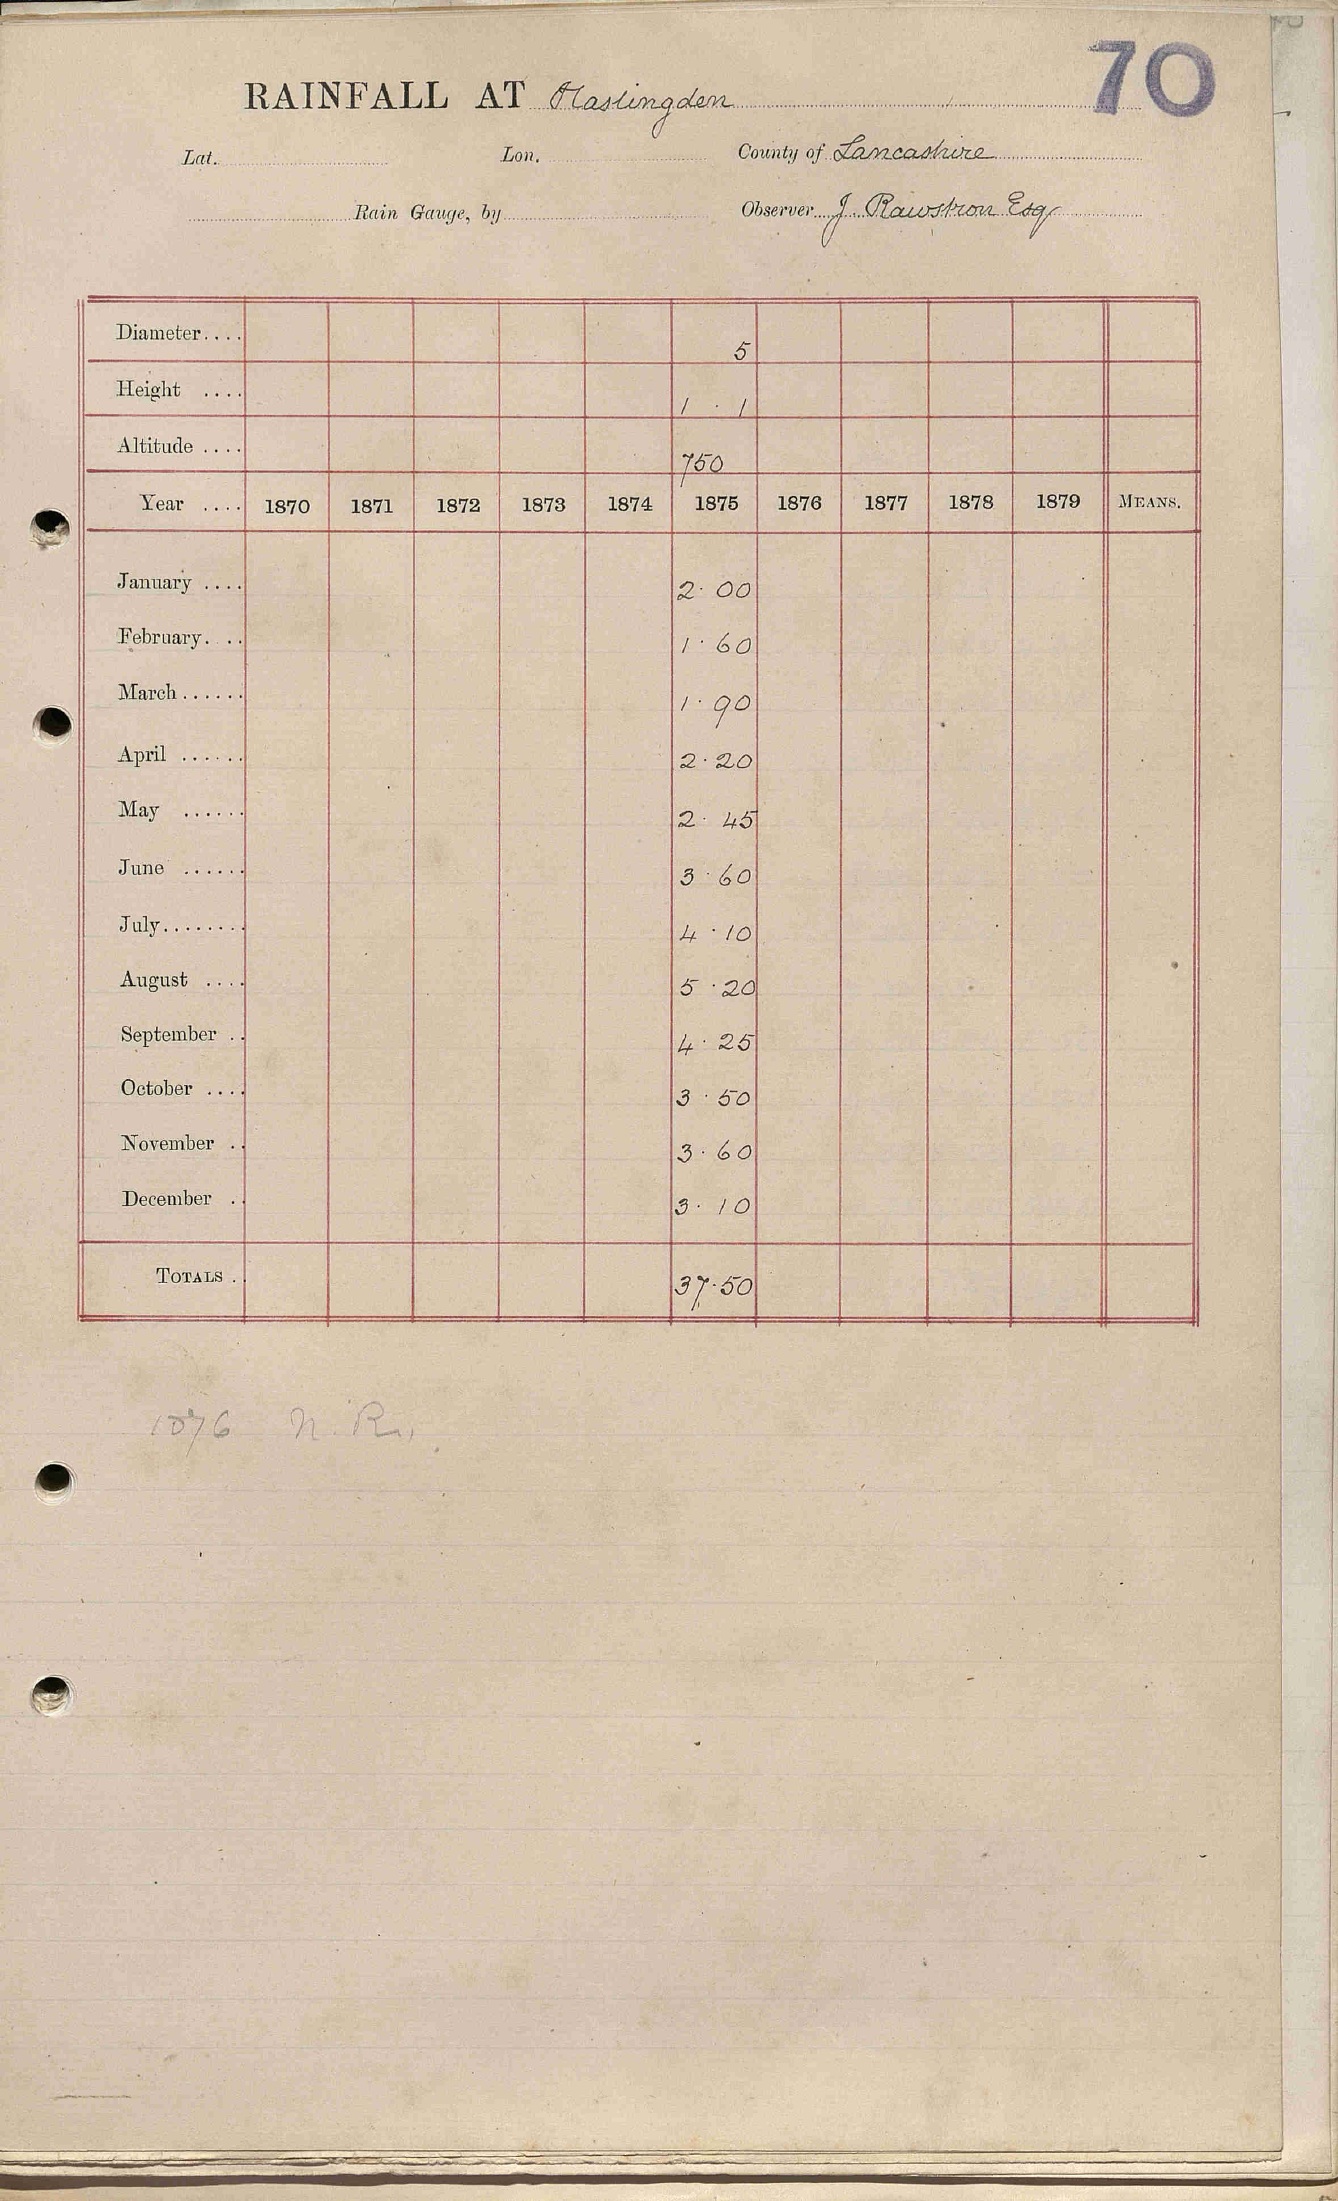 70
RAINFALL AT Haslingden
Lat. Lon. County of Lancashire
Rain Gauge, by Observer J. Rawstron Esq
Diameter.... 5
Height .... 1 · 1
Altitude .... 750
Year .... 1870 1871 1872 1873 1874 1875 1876 1877 1878 1879 MEANS.
January .... 2·00
February. .. 1·60
March...... 1·90
April ...... 2·20
May ...... 2·45
June ...... 3·60
July........ 4·10
August .... 5·20
September .. 4·25
October .... 3·50
November .. 3·60
December .. 3·10
TOTALS . 37·50
1876 N. R.